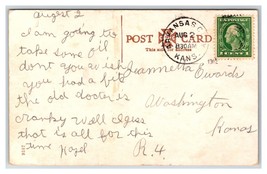 August 2
I am going to
take some oil
dont you wish
you had a bit
the old doctor is
cranky well I guess
that is all for this
time Hazel
POST CARD
ARKANSAS C
AUG 2
8 30 AM
KANS.
Jeannetta Edwards
Washington
Kansas
R. 4